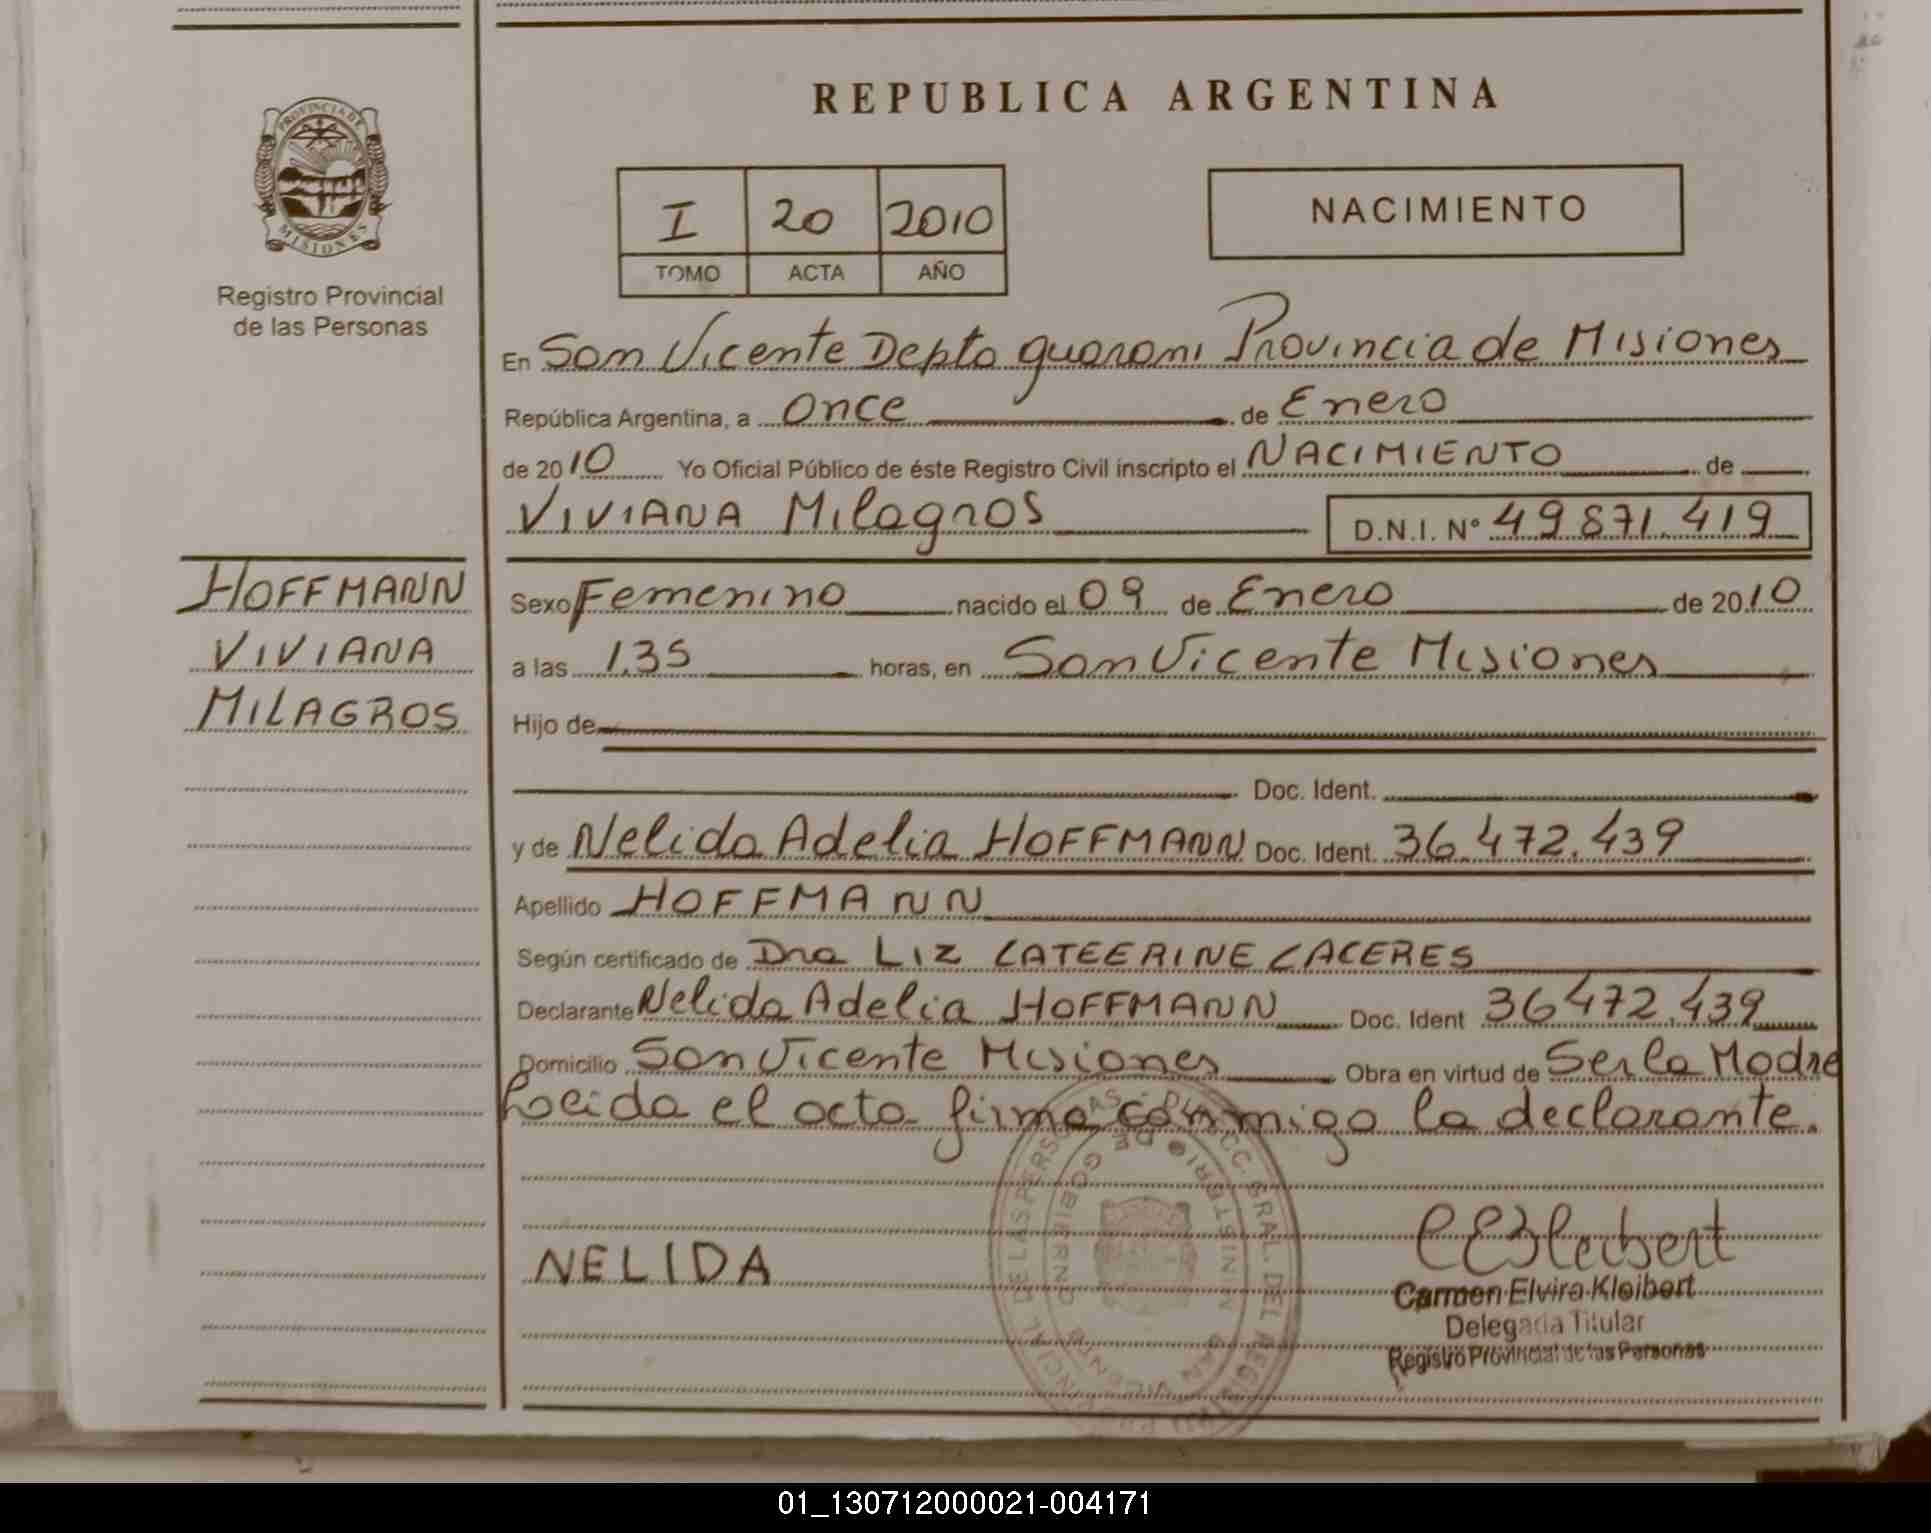 REPUBLICA ARGENTINA
PROVINCIA DE
MISIONES
Registro Provincial
de las Personas
I 20 2010
TOMO ACTA AÑO
NACIMIENTO
En San Vicente Depto guarani Provincia de Misiones
República Argentina, a once de Enero
de 2010 Yo Oficial Público de éste Registro Civil inscripto el NACIMIENTO de
VIVIANA Milagros D.N.I. Nº 49871.419
HOFFMANN
VIVIANA
MILAGROS
Sexo Femenino nacido el 09 de Enero de 2010
a las 1.35 horas, en San Vicente Misiones
Hijo de
Doc. Ident.
y de Nelida Adelia HOFFMANN Doc. Ident. 36.472.439
Apellido HOFFMANN
Según certificado de Dra LIZ CATEERINE CACERES
Declarante Nelida Adelia HOFFMANN Doc. Ident 36472.439
Domicilio San Vicente Misiones Obra en virtud de Ser la Madre
Leida el acta firma conmigo la declarante.
NELIDA
CEKleibert
Carmen Elvira Kleibert
Delegada Titular
Registro Provincial de las Personas
01_130712000021-004171